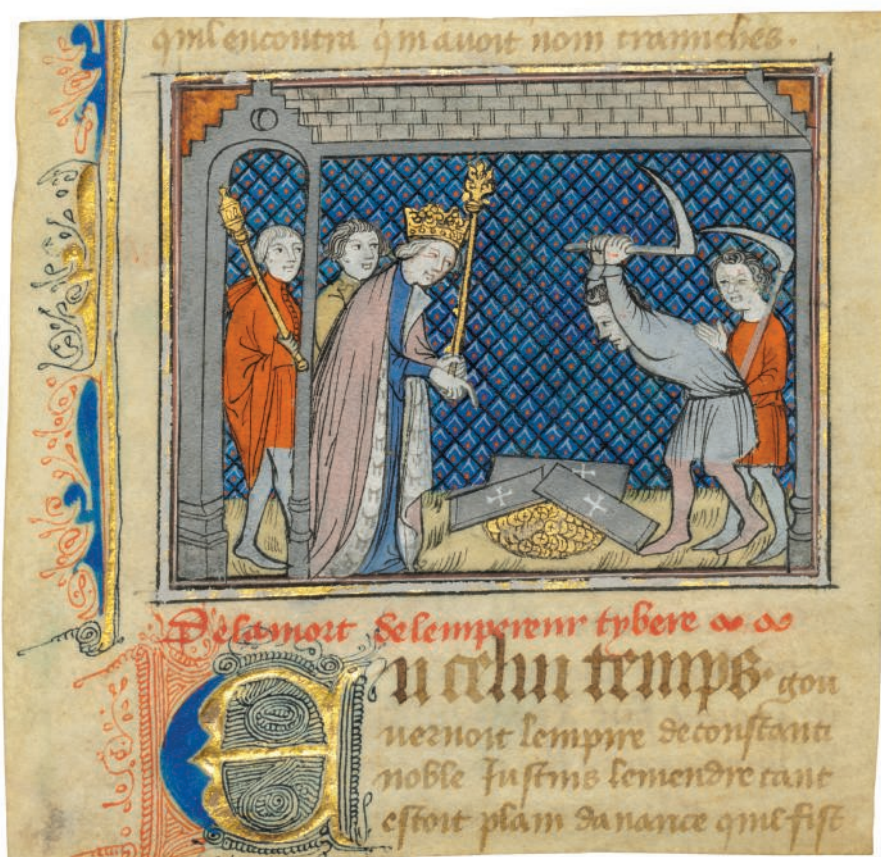 quil encontra qui avoit nom traniches.
De la mort de lempereur tybere
En celui temps gou
uernoit lempire de constanti
noble Justins le mendre tant
estoit plain dauarice quil fist